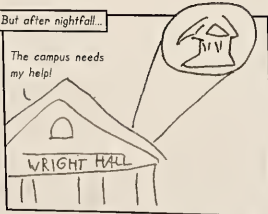 But after nightfall...
The campus needs
my help!
WRIGHT HALL